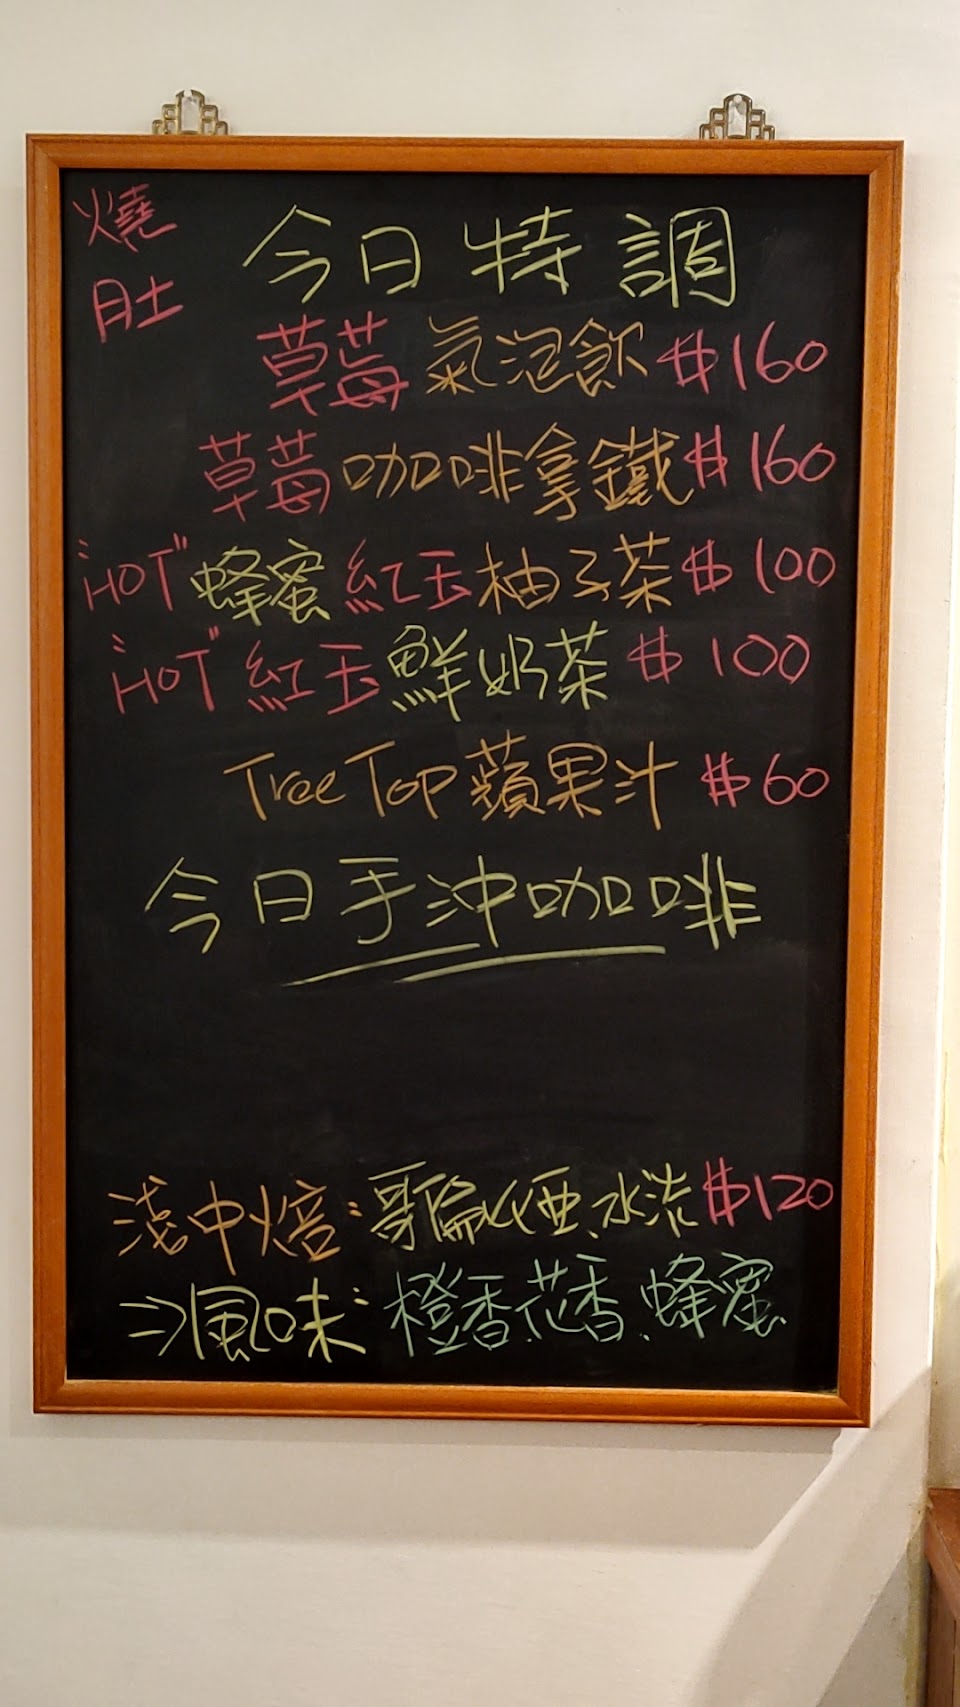 燒肚
今日特調
草莓氣泡飲 $160
草莓咖啡拿鐵 $160
"HOT"蜂蜜紅玉柚子茶 $100
"HOT"紅玉鮮奶茶 $100
Tree Top 蘋果汁 $60
今日手沖咖啡
淺中焙:哥倫比亞、水洗 $120
⇒風味:橙香、花香、蜂蜜